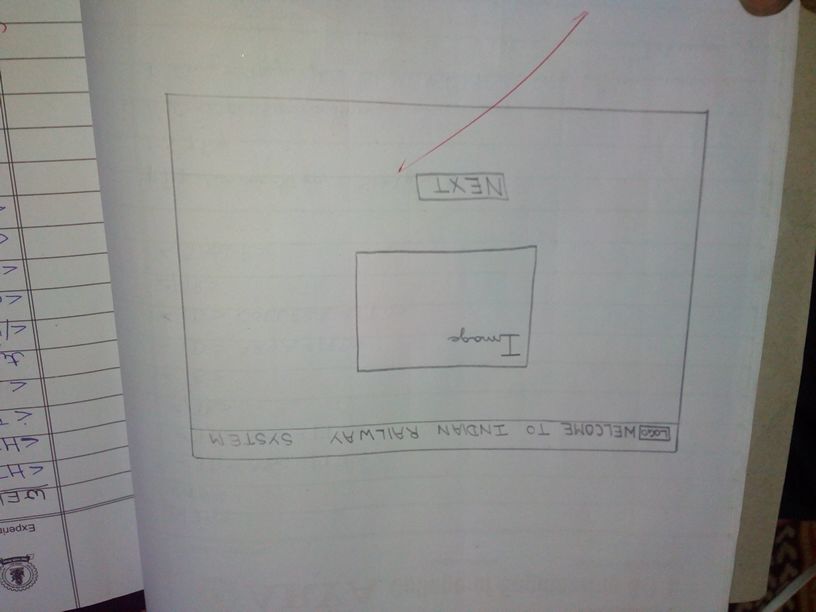 LOGO WELCOME TO INDIAN RAILWAY SYSTEM
Image
NEXT
Experim
WEL
<HT
<H
<T
<
</
<
<
<